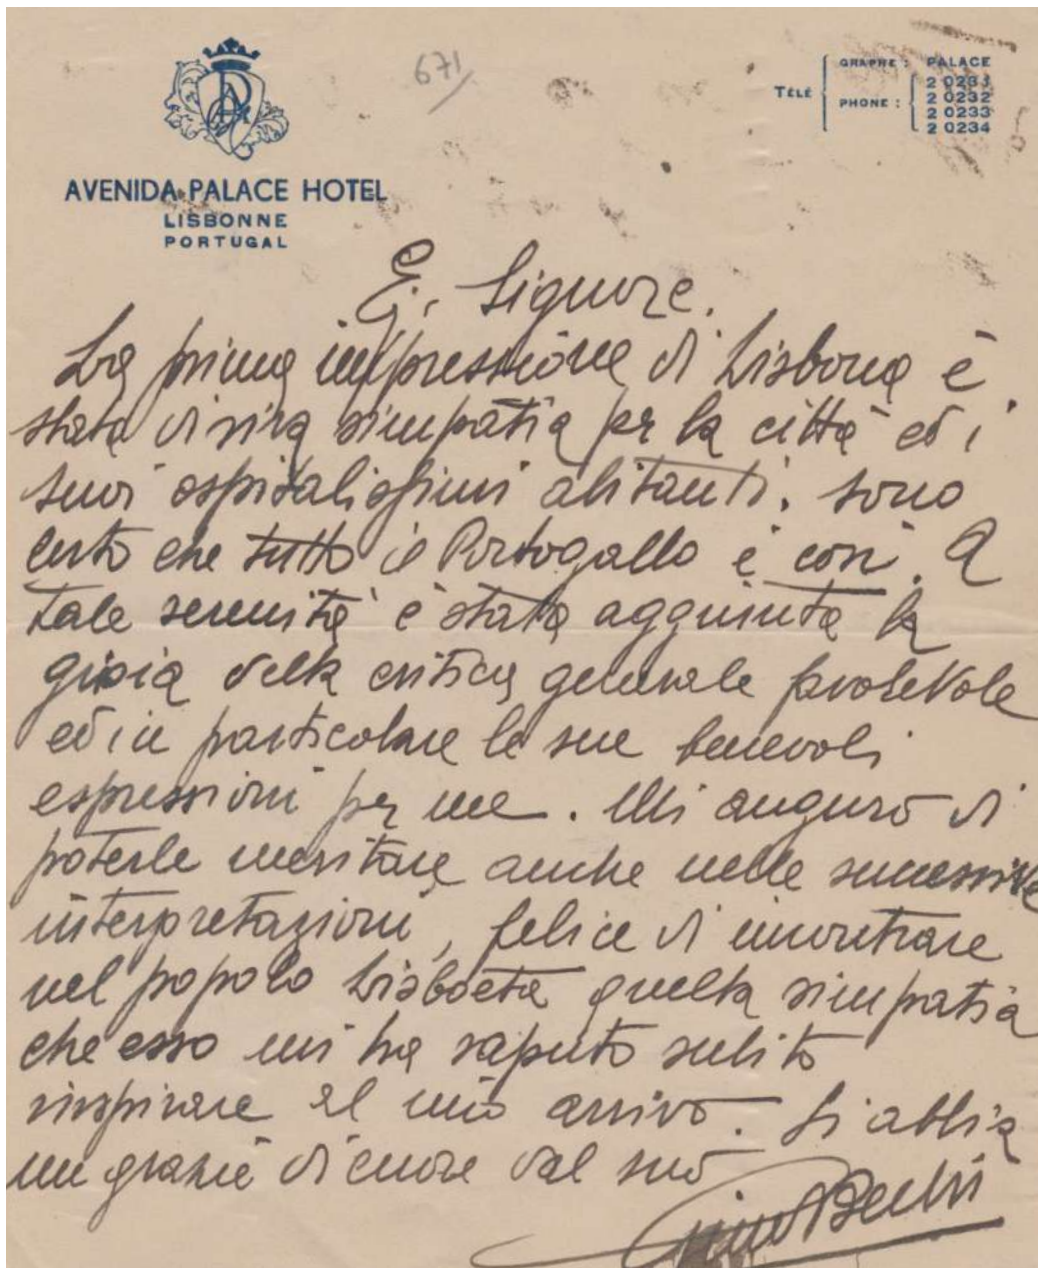 671
TÉLÉ
GRAPHE : PALACE
PHONE :
2 0231
2 0232
2 0233
2 0234
AVENIDA PALACE HOTEL
LISBONNE
PORTUGAL
E. Signore.
La prima impressione di Lisbona è
stata di viva simpatia per la città ed i
suoi ospitalissimi abitanti. Sono
certo che tutto il Portogallo è così. A
tale serenità è stata aggiunta la
gioia della critica generale favorevole
ed in particolare le sue benevoli
espressioni per me. Mi auguro di
poterle meritare anche nelle successive
interpretazioni, felice di incontrare
nel popolo Lisboeta quella simpatia
che esso mi ha saputo subito
inspirare al mio arrivo. Si abbia
un grazie di cuore dal suo
Gino Bechi